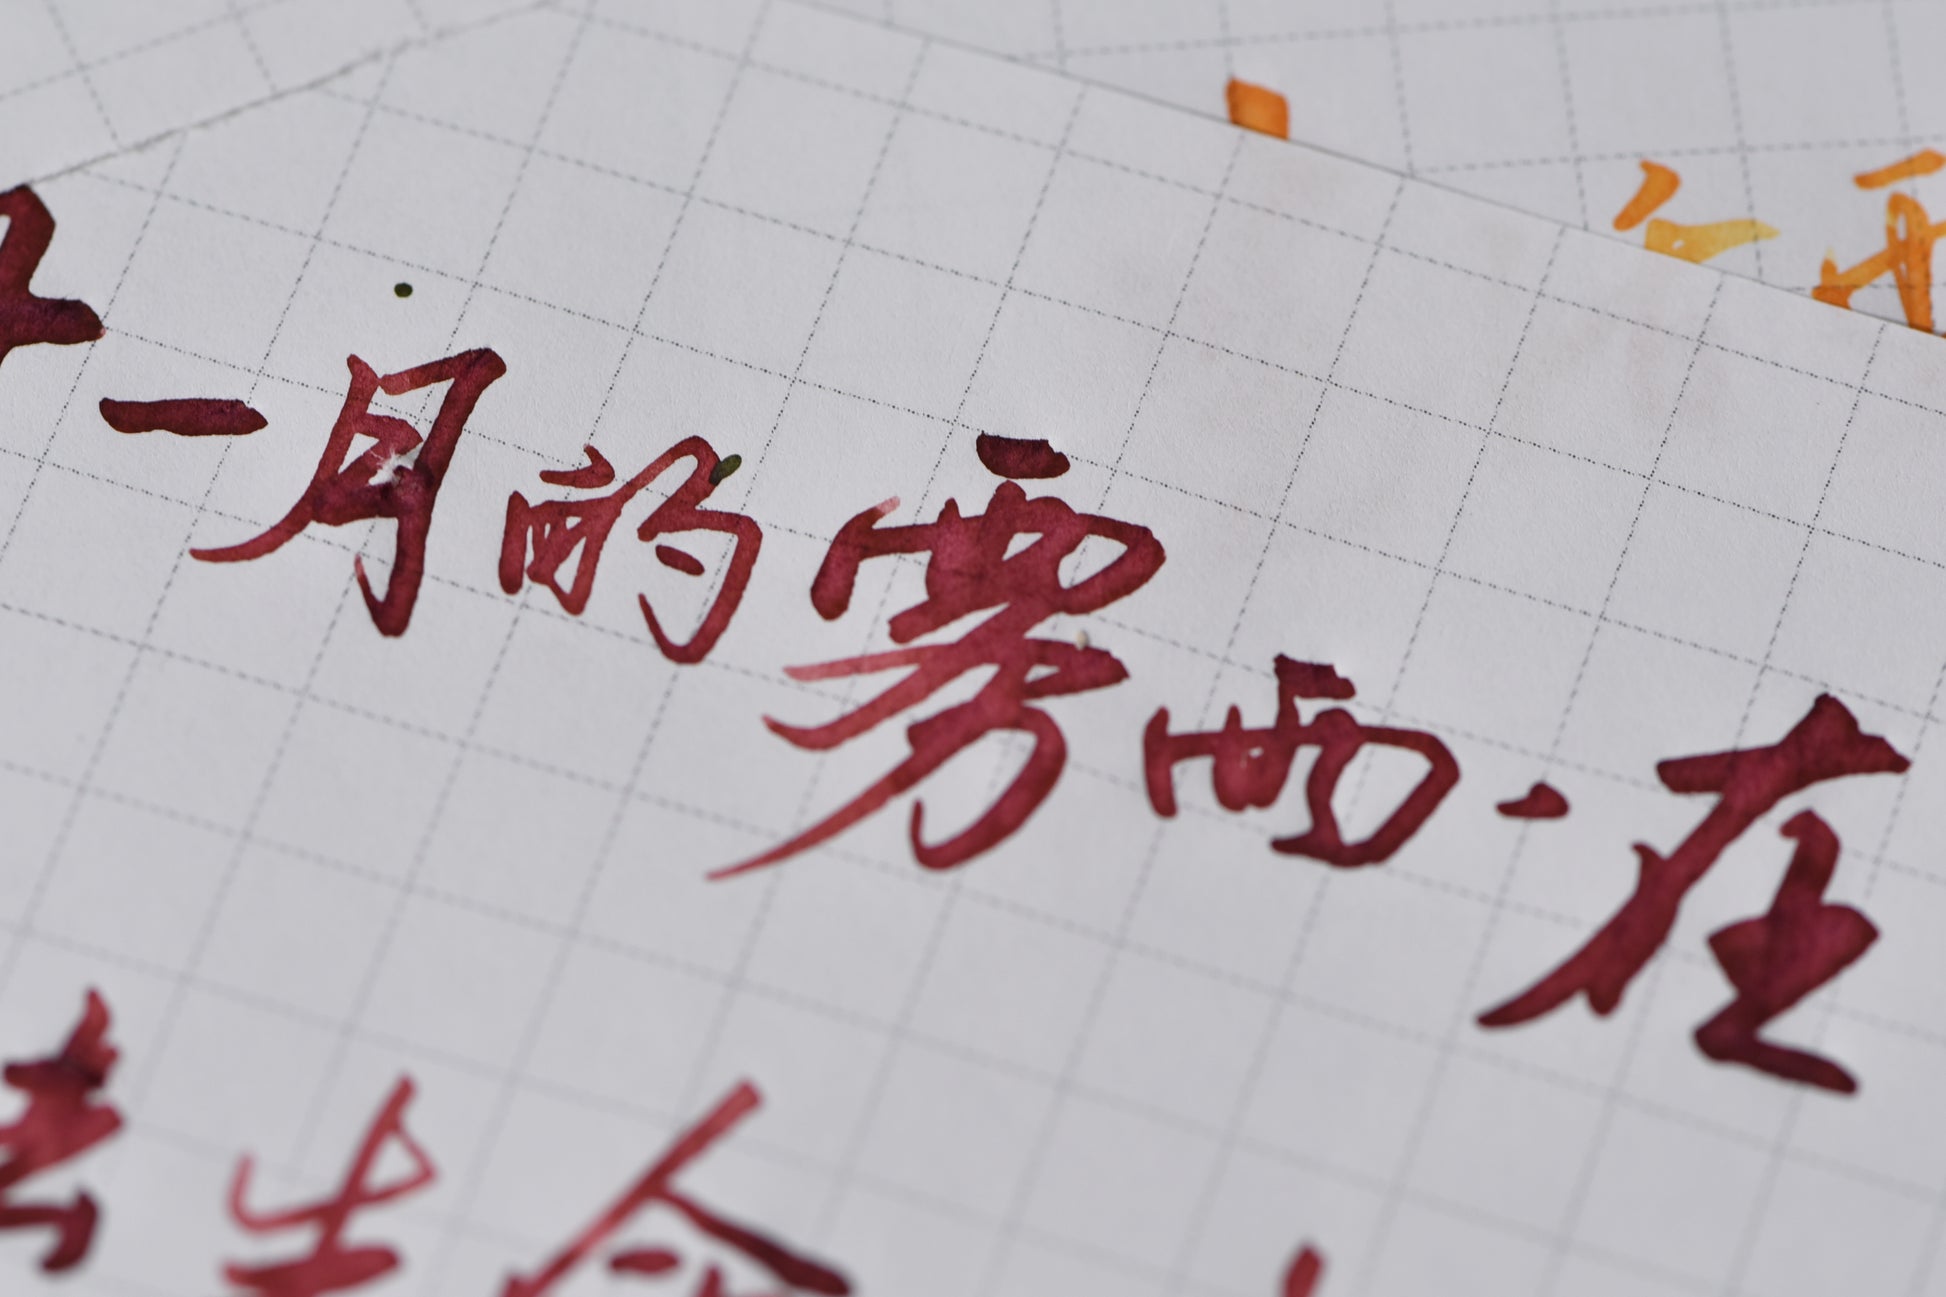 十一月的雾雨，在
去生命